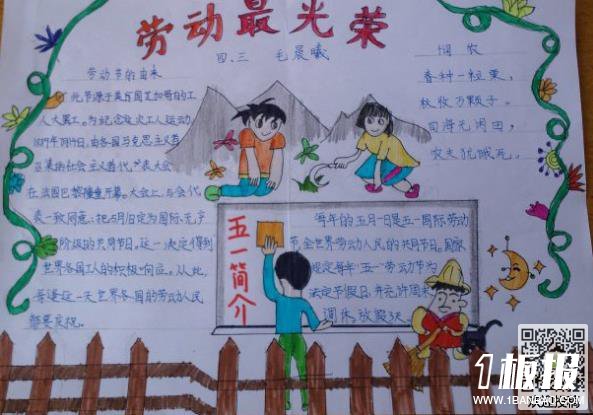 劳动最光荣
四.三 毛晨曦
劳动节的由来
此节源于美国芝加哥的工
人大罢工。为纪念这次工人运动
1889年7月14日,由各国马克思主义者
召集的社会主义者代表大会
在法国巴黎隆重开幕。大会上,与会代
表一致同意:把5月1日定为国际无产
阶级的共同节日。这一决定得到
世界各国工人的积极响应。从此,
每逢这一天世界各国的劳动人民
都要庆祝。
悯农
春种一粒粟,
秋收万颗子。
四海无闲田,
农夫犹饿死。
五一简介
每年的五月一日是五一国际劳动
节,全世界劳动人民的共同节日。国家
规定每年"五一"劳动节为
法定节假日,并允许周末
调休,放假3天
1板报
WWW.1BANBAO.COM